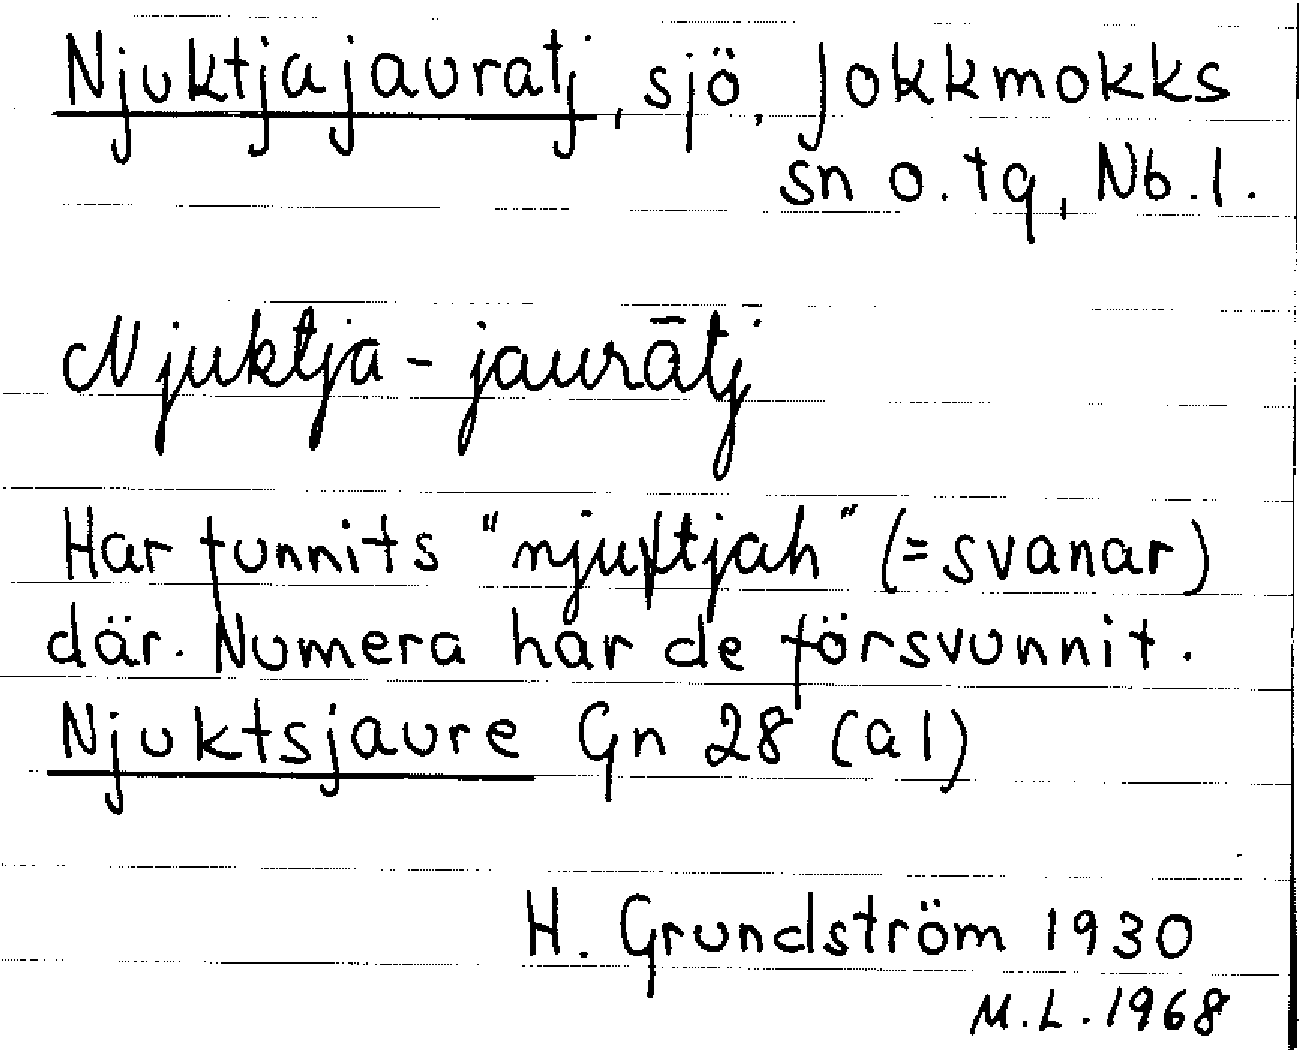 Njuktjajauratj, sjö, Jokkmokks
sn o. tg, Nb. l.
Njuktja-jaurātj
Har funnits "njuktjah" (=svanar)
där. Numera har de försvunnit.
Njuktsjaure Gn 28 (a1)
H. Grundström 1930
M.L. 1968